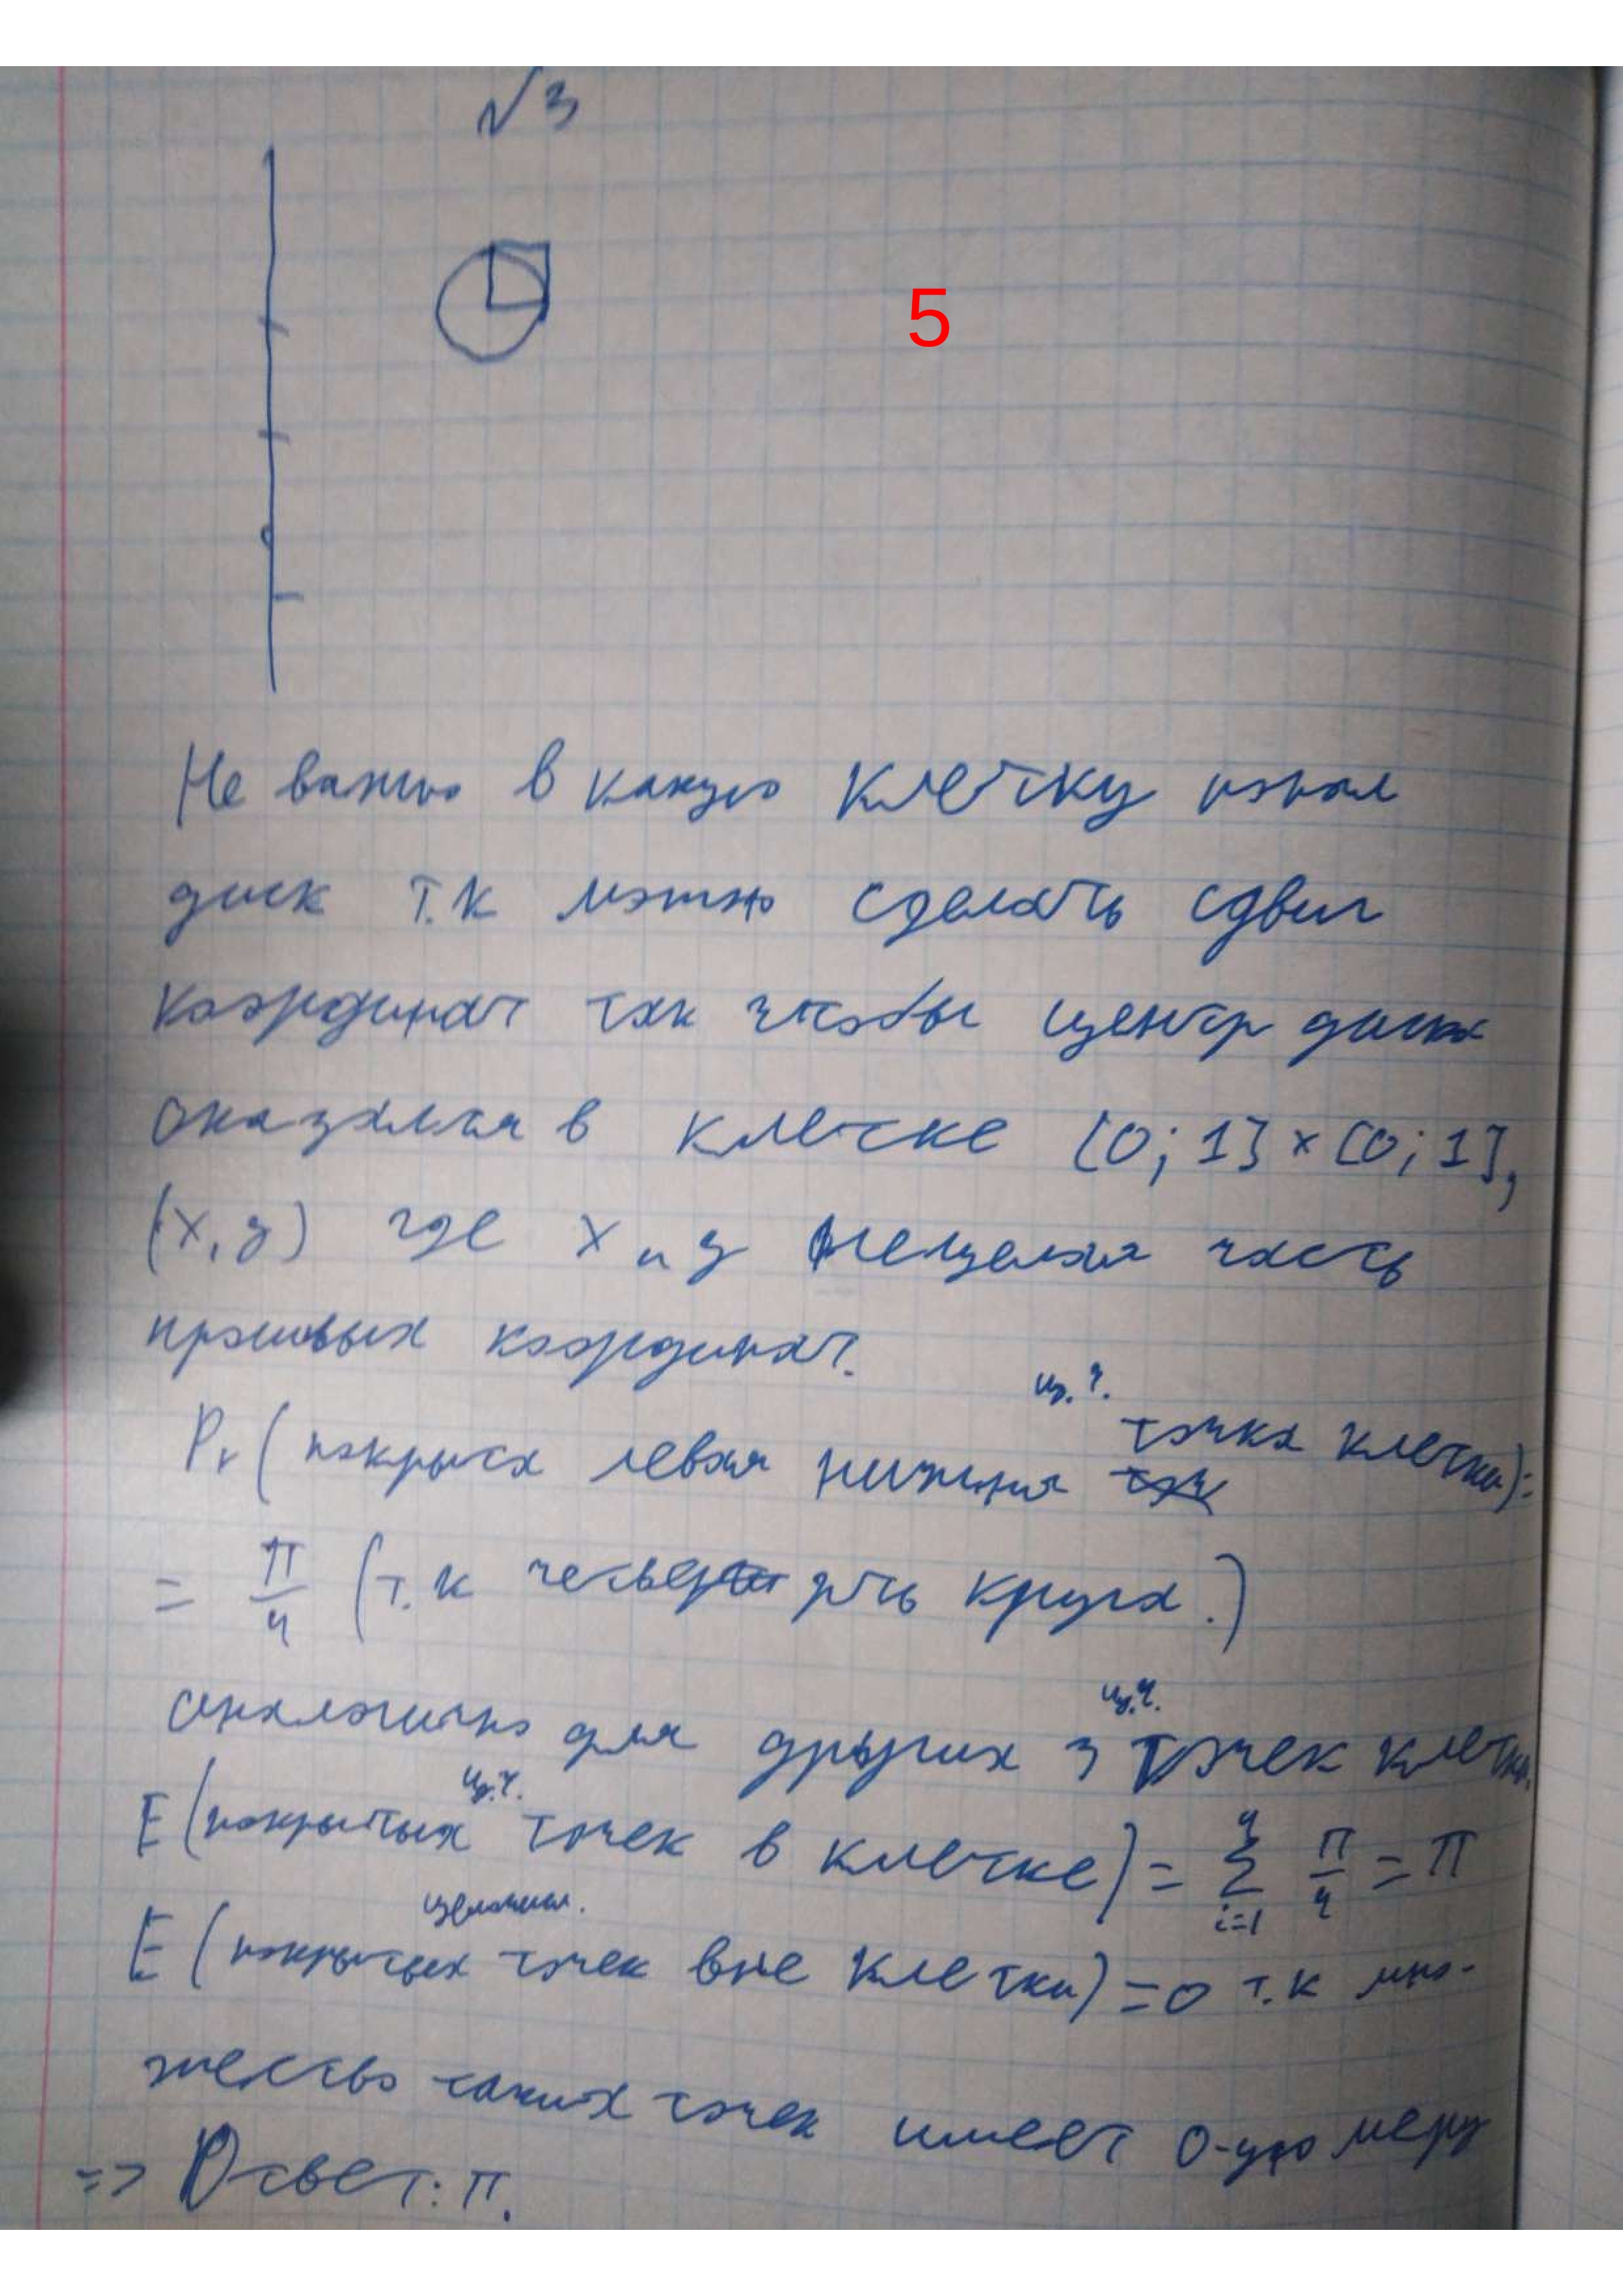 √3
5
Не важно в какую клетку попал
диск т.к можно сделать сдвиг
координат так чтобы центр диска
оказался в клетке [0; 1] × [0; 1],
(x, y) где x и y нецелая часть
прошлых координат.
Pr (покрыта левая нижняя цр. ч. точка клетки) =
= π/4 (т.к четверть круга.)
аналогично для других 3 ц.ч. точек клетки.
E (покрытых ц.ч. точек в клетке) = Σ_{i=1}^{4} π/4 = π
E (покрытых целочисл. точек вне клетки) = 0 т.к мно-
жество таких точек имеет 0-ую меру
=> Ответ: π.